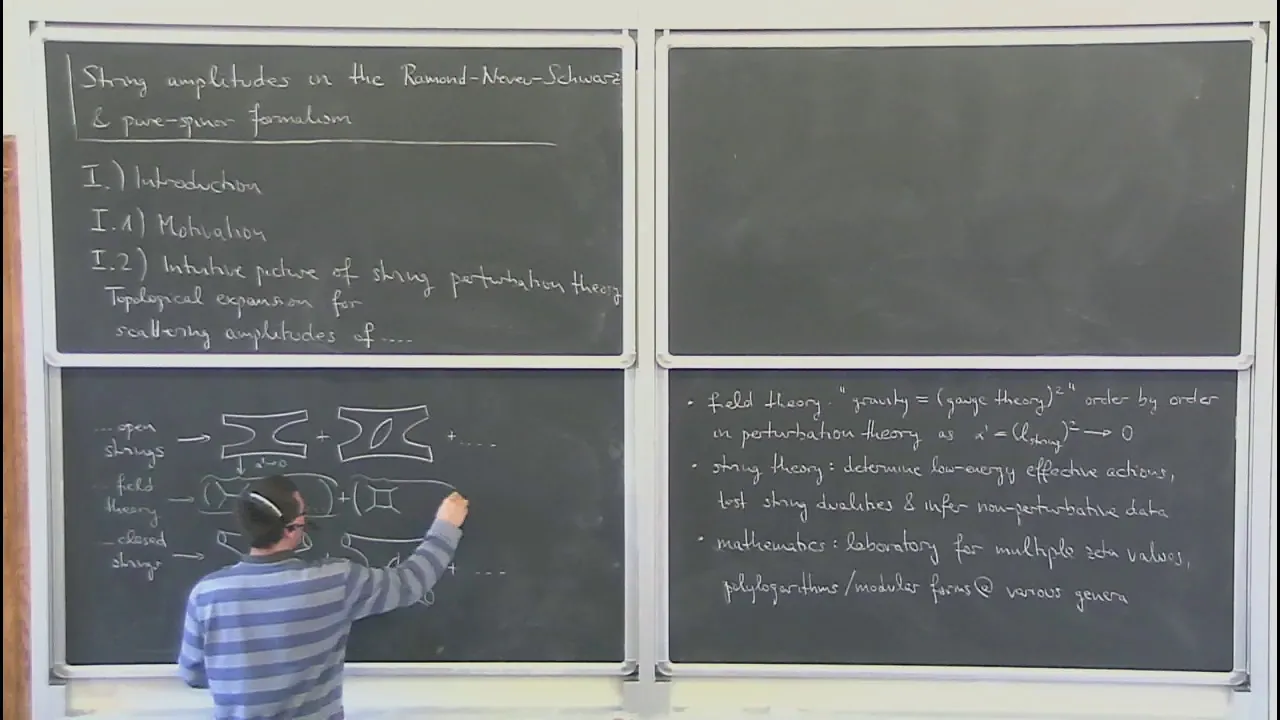 String amplitudes in the Ramond-Neveu-Schwarz
& pure-spinor formalism
I.) Introduction
I.1) Motivation
I.2) Intuitive picture of string perturbation theory
Topological expansion for
scattering amplitudes of ....
...open
strings → + + ....
↓ α'→0
...field
theory → ( ) + (
...closed
strings → + + ...
• field theory: "gravity = (gauge theory)²" order by order
in perturbation theory as α' = (l_string)² → 0
• string theory: determine low-energy effective actions,
test string dualities & infer non-perturbative data
• mathematics: laboratory for multiple zeta values,
polylogarithms/modular forms @ various genera